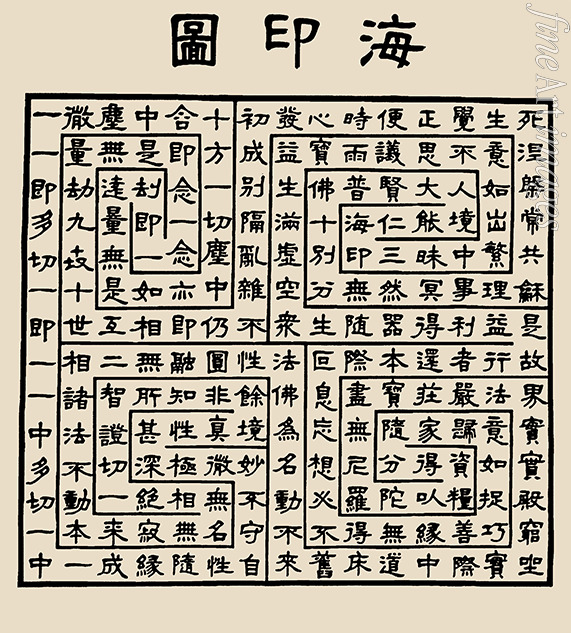 海印圖
死涅槃常共穌是故界實寶殿窮坐
生意如出繁理益行法意如捉巧實
覺不人境中事利者嚴歸資糧善際
正思大能昧冥得還莊家得以緣中
便議賢仁三然器本寶隨分陀無道
時雨普海印無隨際盡無尼羅得床
心寶佛十別分生叵息忘想必不舊
發益生滿虛空眾法佛為名動不來
初成別隔亂雜不性餘境妙不守自
十方一切塵中仍圓非真微無名性
含即念一念亦即融知性極相無隨
中是劫即一如相無所甚深絕寂緣
塵無遠量無是互二智證切一來成
微量劫九世十世相諸法不動本一
一一即多切一即一一中多切一中
fineArtimages